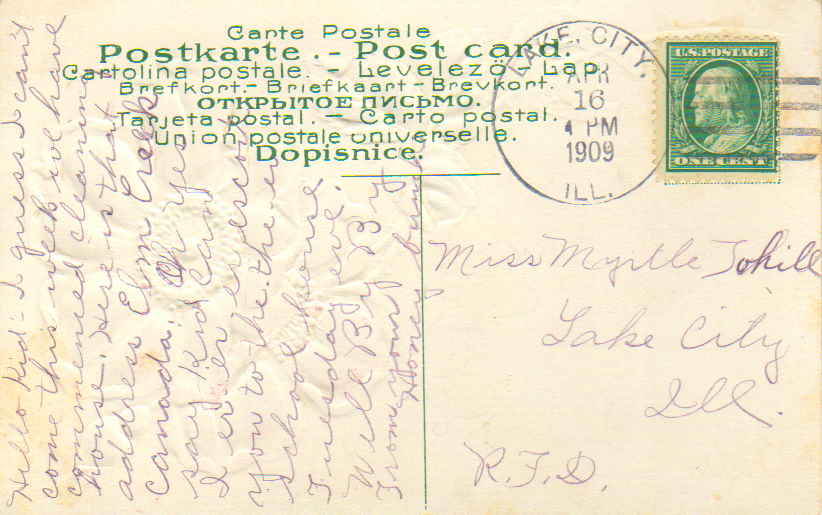 Carte Postale
Postkarte. - Post card.
Cartolina postale. - Levelezö - Lap.
Brefkort. - Briefkaart - Brevkort.
ОТКРЫТОЕ ПИСЬМО.
Tarjeta postal. - Carto postal.
Union postale universelle.
Dopisnice.
LAKE CITY,
APR
16
PM
1909
ILL.
U.S. POSTAGE
ONE CENT
Miss Myrtle Tohill
Lake City
Ill.
R.F.D.
Hello Kid - I guess I can't
come this week we have
commenced cleaning
house. Here is that
address Elm Creek
Canada. Oh Yes
say Kid can
I er er er escort
you to the the er
School house
Tuesday eve.
Well By By
From your
Honey bunch